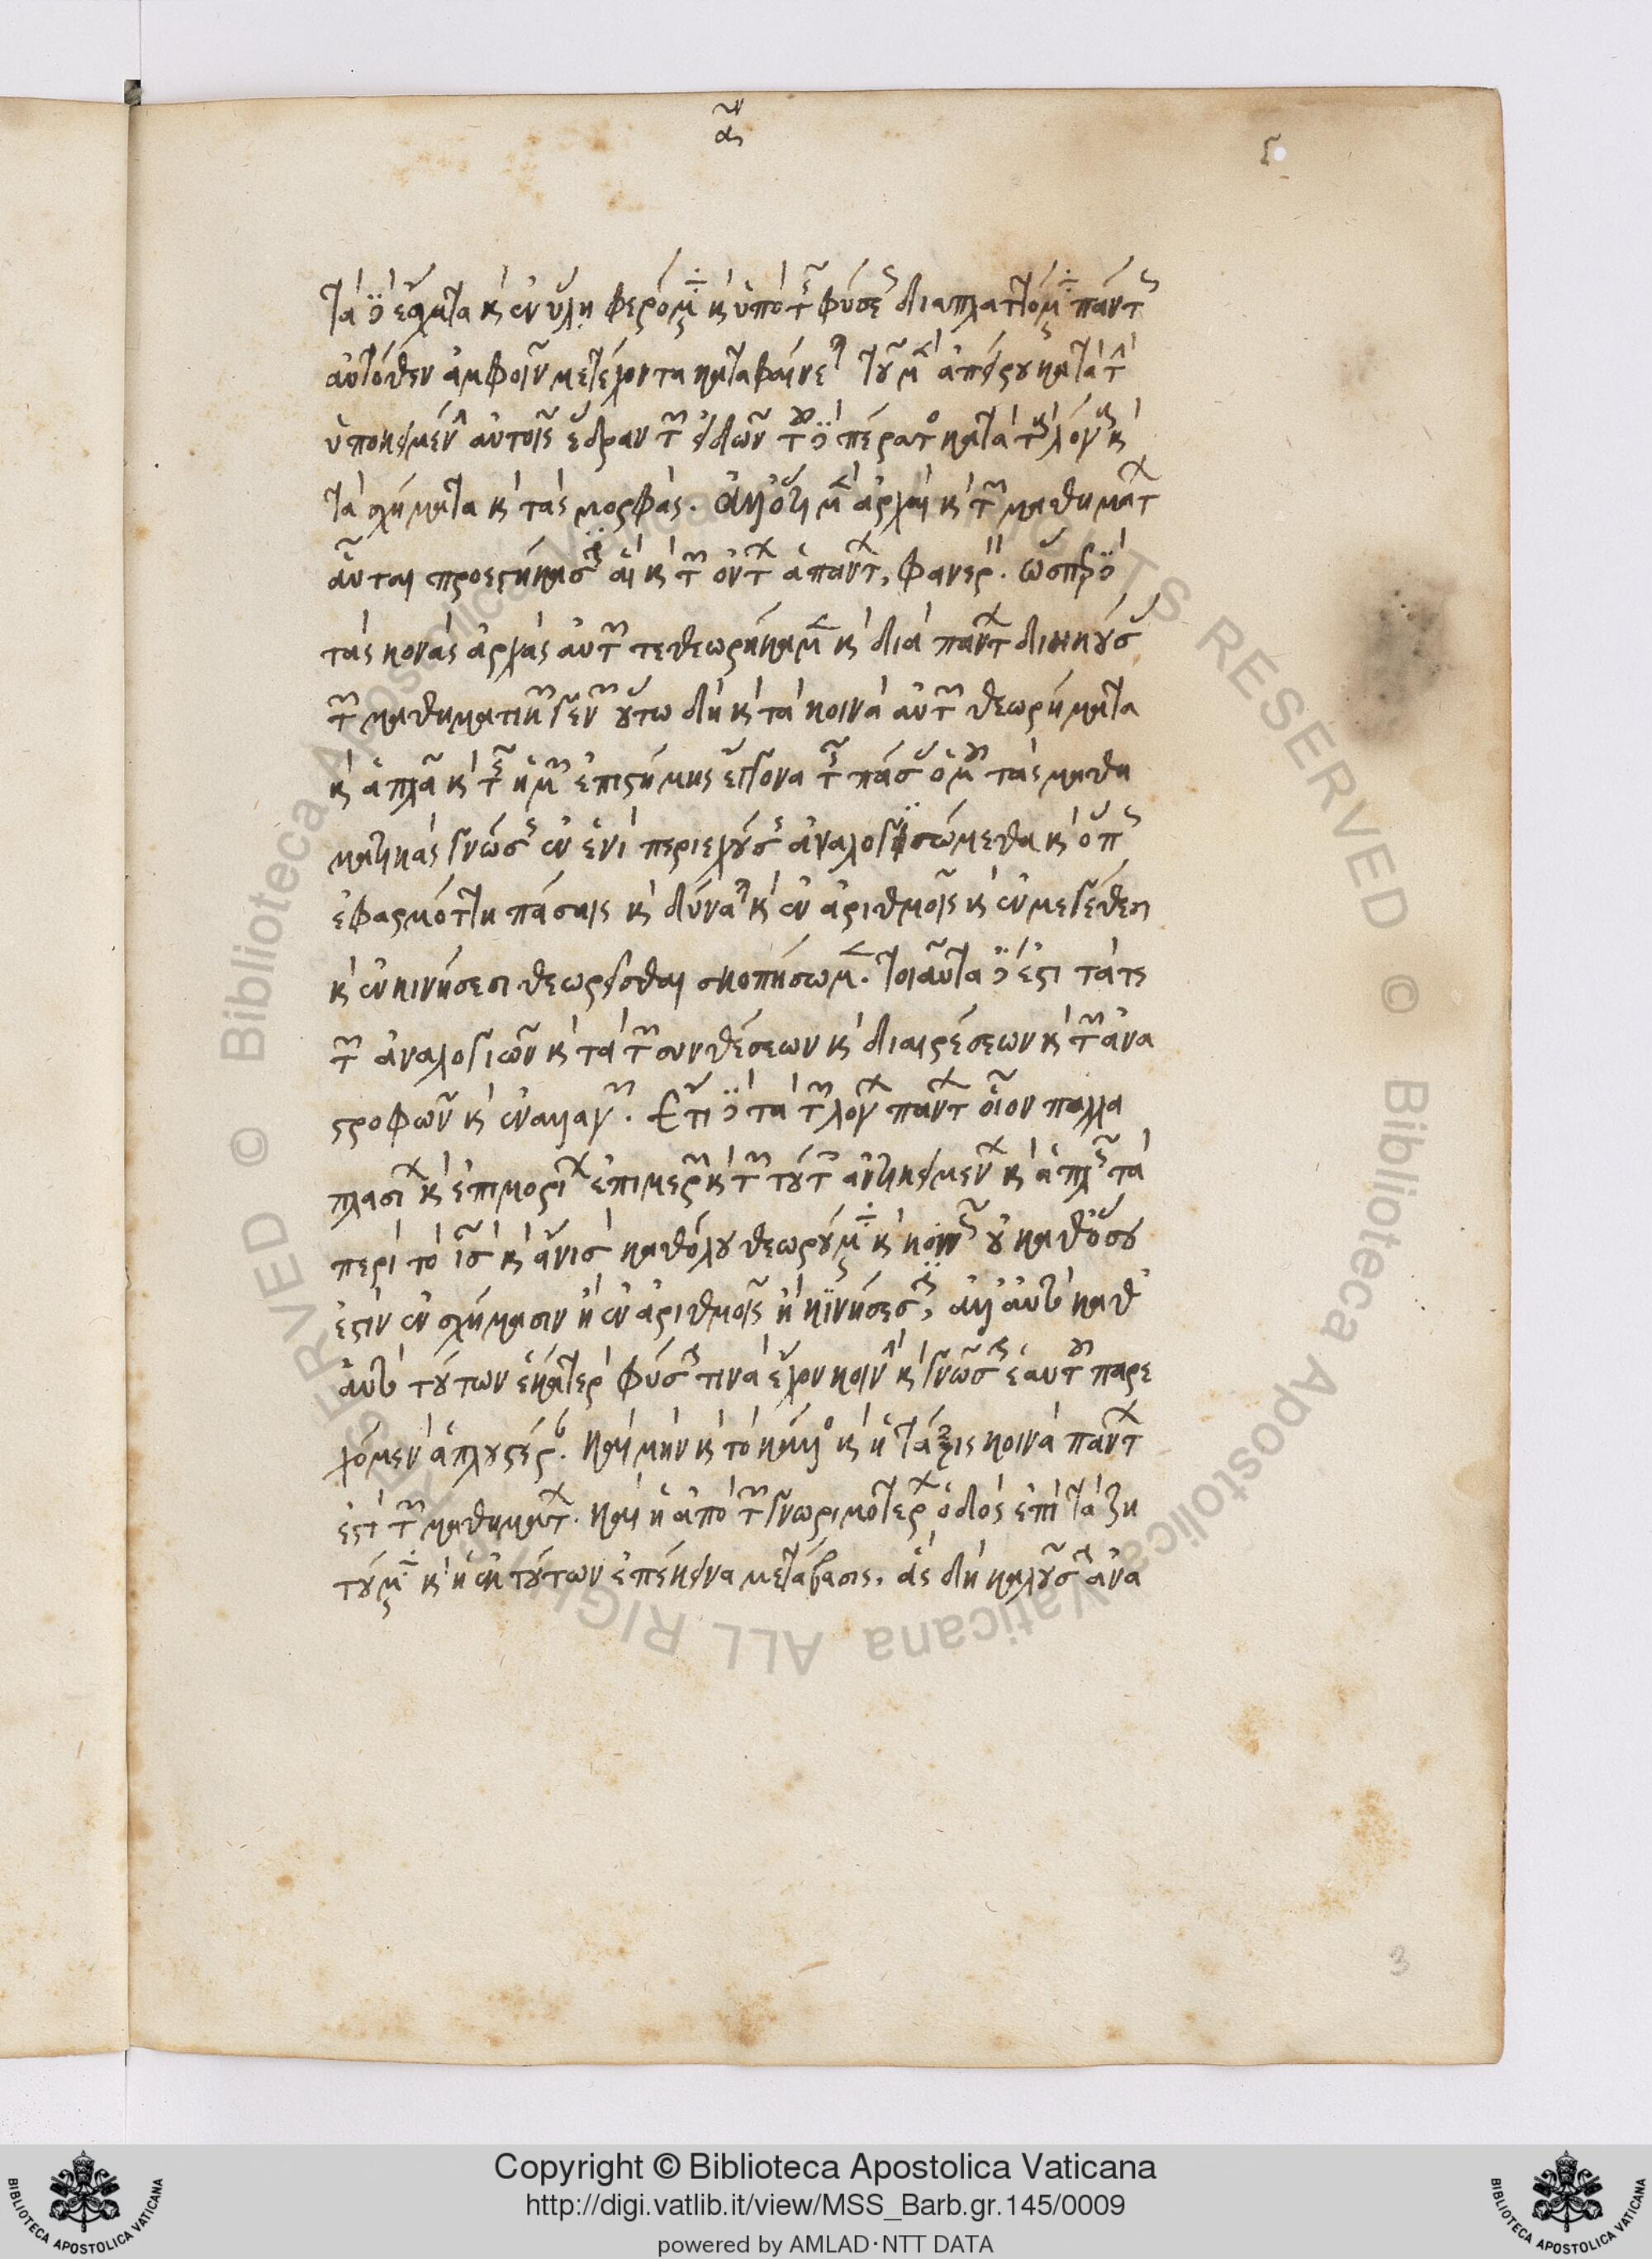 ᾱν
ς
3
τὰ δὲ ἔσχατα καὶ ἐν ὕλῃ φερόμενα καὶ ὑπὸ τῆς φύσεως διαπλαττόμενα πάντως
αὐτόθεν ἀμφοῖν μετέχοντα καταφαίνεται τοῦ μὲν ἀπείρου κατὰ τὴν
ὑποκειμένην αὐτοῖς ἕδραν τῶν εἰδῶν τοῦ δὲ πέρατος κατὰ τοὺς λόγους καὶ
τὰ σχήματα καὶ τὰς μορφάς. ἀλλ' ὅτι μὲν ἀρχαὶ καὶ τῶν μαθημάτων
αὗται προεστήκασιν αἳ καὶ τῶν ὄντων ἁπάντων, φανερόν. ὥσπερ δὲ
τὰς κοινὰς ἀρχὰς αὐτῶν τεθεωρήκαμεν καὶ διὰ πάντων διηκούσας
τῶν μαθηματικῶν γενῶν οὕτω δὴ καὶ τὰ κοινὰ αὐτῶν θεωρήματα
καὶ ἁπλᾶ καὶ τῆς ἡμῶν ἐπιστήμης ἔγγονα τῆς πάσας ὁμοῦ τὰς μαθη
ματικὰς γνώσεις ἐν ἑνὶ περιεχούσης ἀναλογισώμεθα καὶ ὅπως
ἐφαρμόττει πάσαις καὶ δύναται καὶ ἐν ἀριθμοῖς καὶ ἐν μεγέθεσι
καὶ ἐν κινήσεσι θεωρεῖσθαι σκοπήσωμεν. τοιαῦτα δέ ἐστι τά τε
τῶν ἀναλογιῶν καὶ τὰ τῶν συνθέσεων καὶ διαιρέσεων καὶ τῶν ἀνα
στροφῶν καὶ ἐναλλαγῶν. ἔτι δὲ τὰ τῶν λόγων πάντων οἷον πολλα
πλασίων καὶ ἐπιμορίων ἐπιμερῶν καὶ τῶν τούτοις ἀντικειμένων καὶ ἁπλῶς τὰ
περὶ τὸ ἴσον καὶ ἄνισον καθόλου θεωρούμενα καὶ κοινῶς οὐ καθόσον
ἐστὶν ἐν σχήμασιν ἢ ἐν ἀριθμοῖς ἢ κινήσεσιν, ἀλλ' αὐτὸ καθ'
αὑτὸ τούτων ἑκάτερον φύσιν τινὰ ἔχον κοινὴν καὶ γνῶσιν ἑαυτοῦ παρε
χόμενον ἁπλουστέραν. καὶ μὴν καὶ τὸ κάλλος καὶ ἡ τάξις κοινὰ πάντων
ἐστὶ τῶν μαθημάτων. καὶ ἡ ἀπὸ τῶν γνωριμοτέρων ὁδὸς ἐπὶ τὰ ζη
τούμενα καὶ ἡ ἐκ τούτων ἐπ' ἐκεῖνα μετάβασις, ἃς δὴ καλοῦσιν ἀνα
Copyright © Biblioteca Apostolica Vaticana
http://digi.vatlib.it/view/MSS_Barb.gr.145/0009
powered by AMLAD·NTT DATA
BIBLIOTECA APOSTOLICA VATICANA
BIBLIOTECA APOSTOLICA VATICANA
© Biblioteca Apostolica Vaticana ALL RIGHTS RESERVED